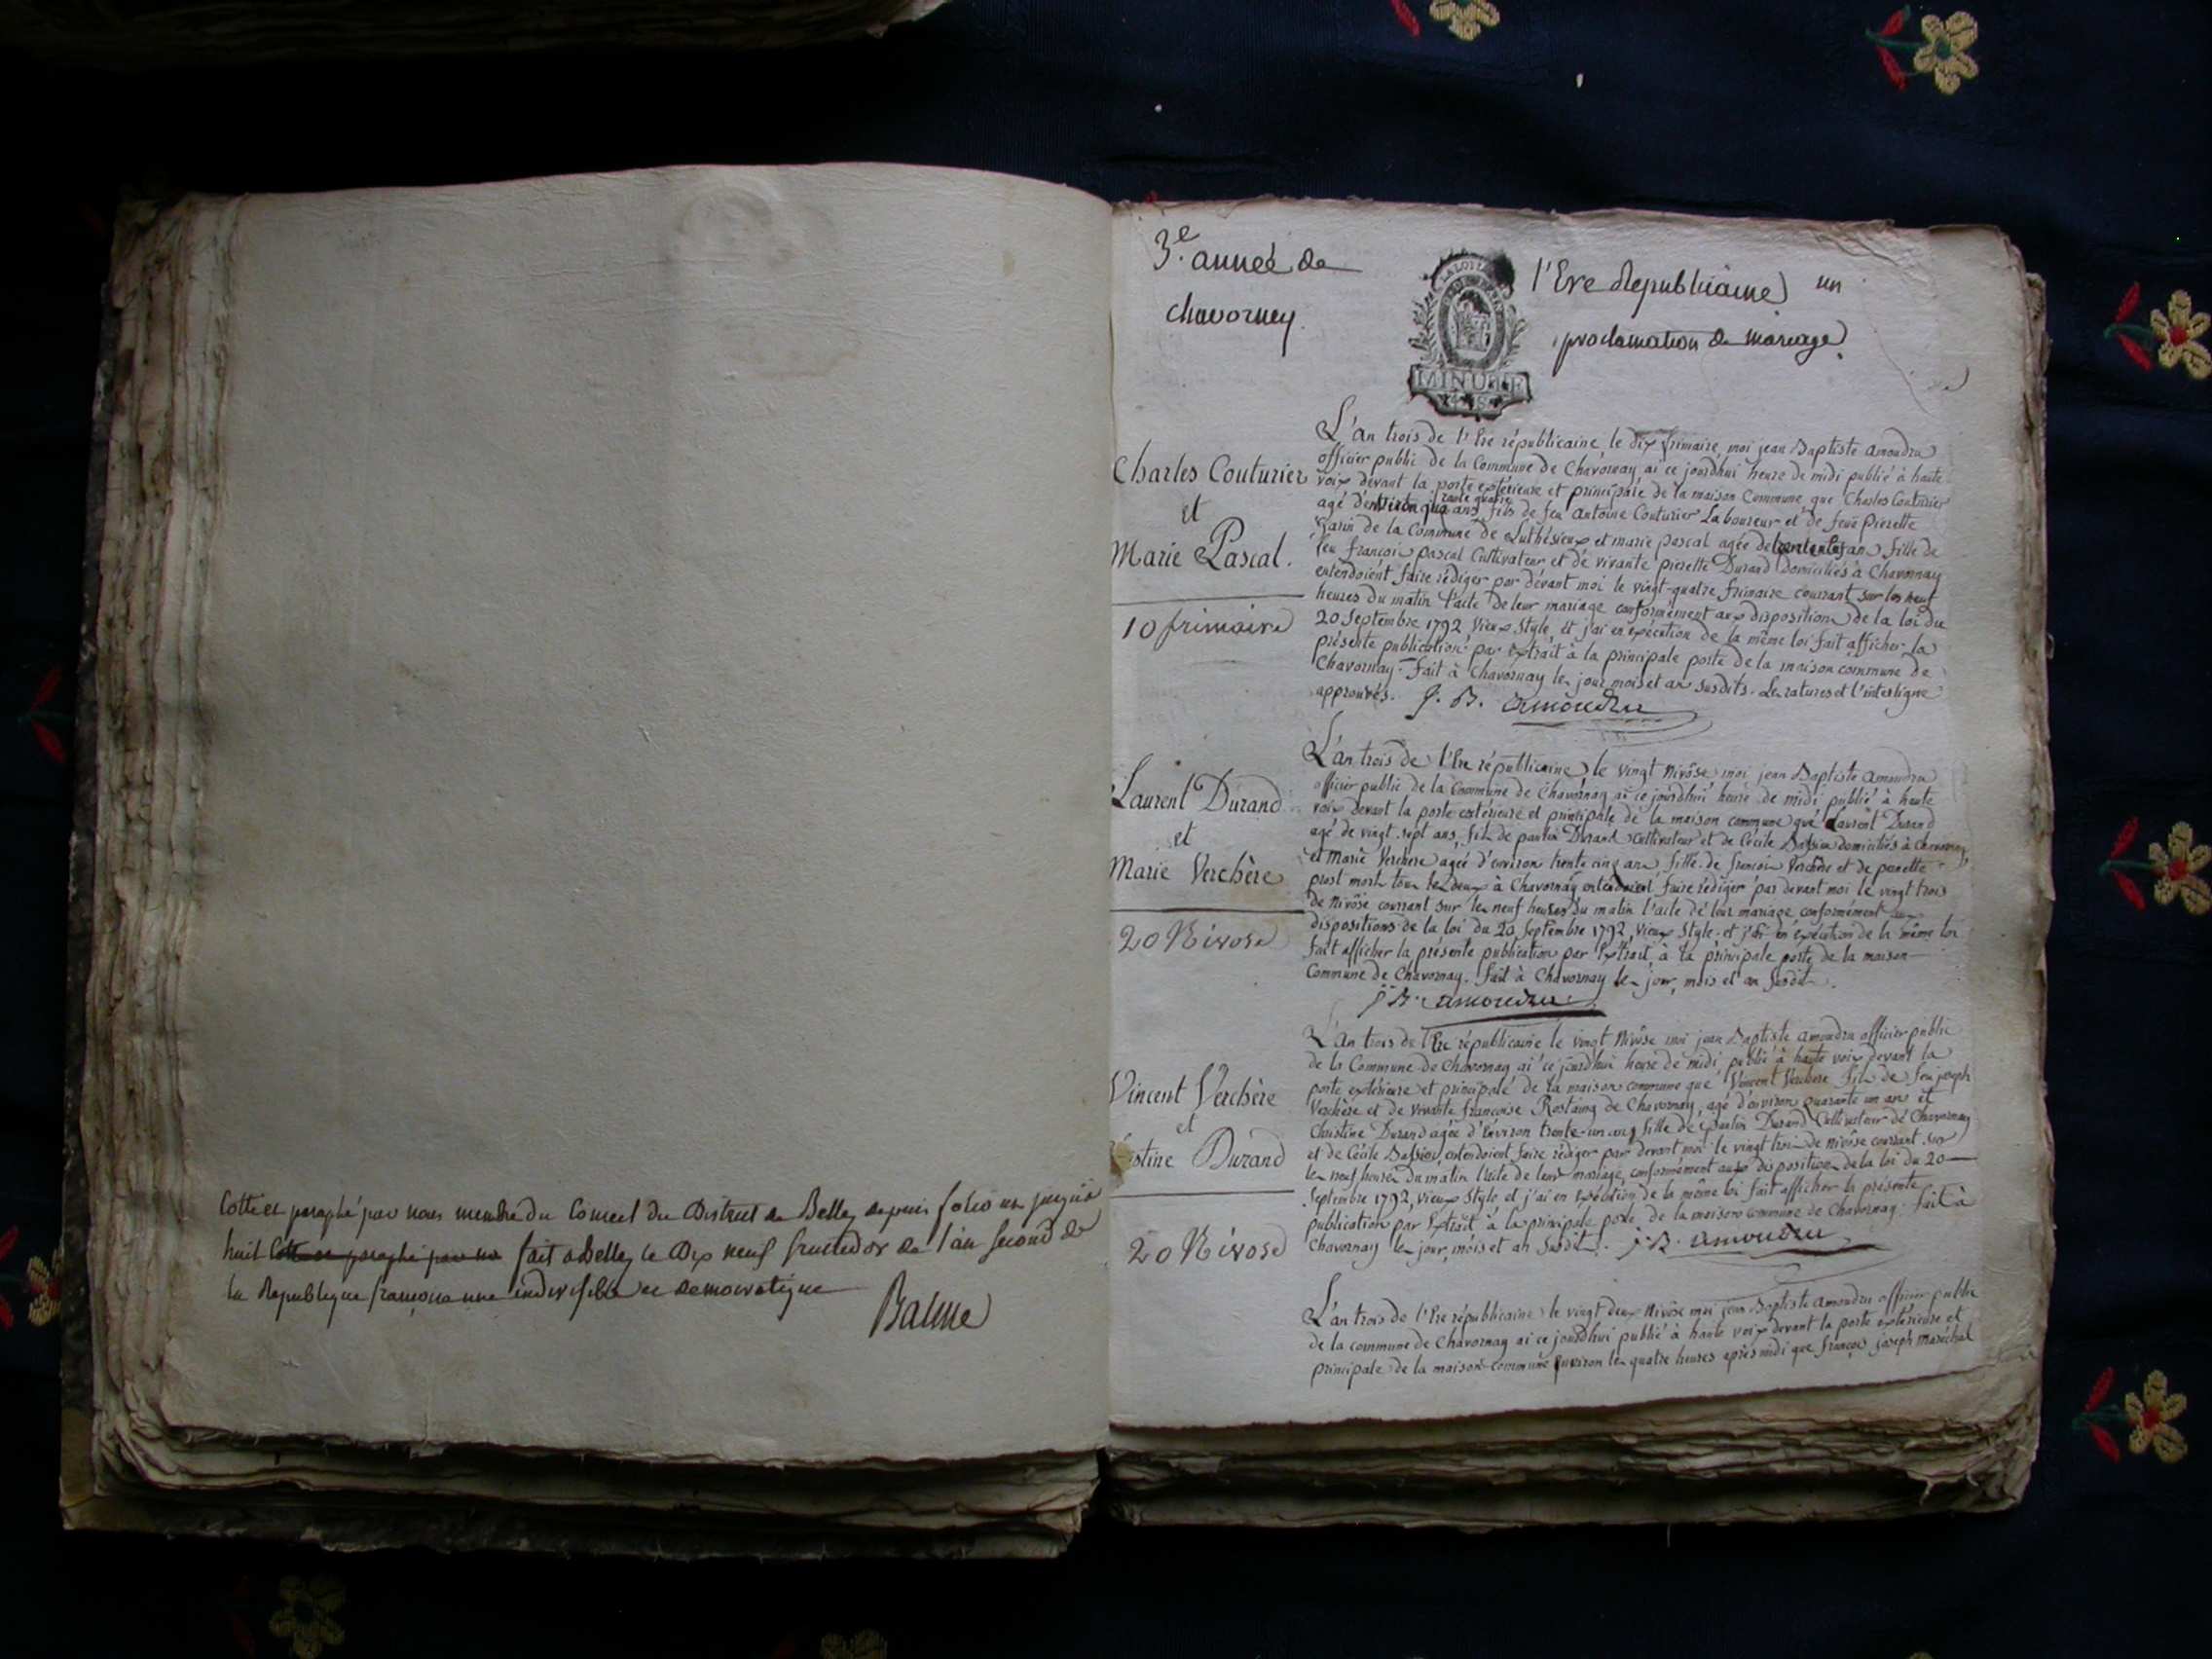 Cotté et paraphé par nous membre du Conseil du District de Belley depuis folio un jusquà
huit cotté et paraphé par nous fait a Belley le Dix neuf fructidor de l'an second de
la Republique francoise une indivisible et democratique
Balme
3e. anneé de l'Ere Republicaine un
chavorney. proclamation de mariage.
MINUTE
Charles Couturier
et
Marie Pascal.
10 frimaire
L'an trois de l'Ere républicaine, le dix frimaire, moi jean Baptiste amoudru
officier public de la Commune de Chavornay ai ce jourdhui heure de midi publié à haute
voix devant la porte extérieure et principale de la maison Commune, que Charles Couturier
rante quatre
agé d'environ qua ans fils de feu antoine Couturier Laboureur et de feue pierette
Garin de la Commune de Luthésieux et marie pascal agée de ans fille de
feu françois pascal Cultivateur et de vivante pierette Durand Domiciliés à Chavornay
entendoient faire rédiger par devant moi le vingt-quatre frimaire courrant sur les neuf
heures du matin l'acte de leur mariage conformément aux dispositions de la loi du
20 Septembre 1792 Vieux Style, et j'ai en exécution de la même loi fait afficher la
présente publication par extrait à la principale porte de la maison commune de
Chavornay. Fait à Chavornay les jour mois et an susdits. Les ratures et l'interligne
approuvés. J. B. amoudru
Laurent Durand
et
Marie Verchère
20 Nivose
L'an trois de l'Ere républicaine le vingt Nivôse moi jean Baptiste amoudru
officier public de la Commune de Chavornay ai ce jourdhui heure de midi publié à haute
voix devant la porte extérieure et principale de la maison commune que Laurent Durand
agé de vingt-sept ans, fils de paulin Durand cultivateur et de Cécile domiciliés à Chavornay
et Marie Verchere agée d'environ trente cinq ans, fille de françois Verchère et de
prost morts tous les deux à Chavornay entendoient faire rédiger par devant moi le vingt trois
de Nivôse courrant sur les neuf heures du matin l'acte de leur mariage conformément aux
dispositions de la loi du 20 Septembre 1792, vieux Style. et j'ai en exécution de la même loi
fait afficher la présente publication par Extrait à la principale porte de la maison
Commune de Chavornay. fait à Chavornay les jour, mois et an susdits.
J. B. amoudru
Vincent Verchère
et
stine Durand
20 Nivose
L'an trois de l'Ere républicaine le vingt Nivôse moi jean Baptiste amoudru officier public
de la Commune de Chavornay ai ce jourdhui heure de midi, publié à haute voix devant la
porte extérieure et principale de la maison commune que Vincent Verchere fils de feu joseph
Verchère et de vivante françoise Rostaing de Chavornay, agé d'environ quarante un ans et
Christine Durand agée d'environ trente-un ans fille de paulin Durand Cultivateur de Chavornay
et de Cécile entendoient faire rédiger par devant moi le vingt trois de nivôse courrant sur
les neuf heures du matin l'acte de leur mariage, conformément aux dispositions de la loi du 20
Septembre 1792, vieux Style et j'ai en exécution de la même loi fait afficher la présente
publication par Extrait à la principale porte de la maison commune de Chavornay. fait à
Chavornay les jour, mois et an susdits. J. B. amoudru
L'an trois de l'Ere républicaine le vingt deux Nivôse moi jean Baptiste amoudru officier public
de la commune de Chavornay ai ce jourdhui publié à haute voix devant la porte extérieure et
principale de la maison commune environ les quatre heures après midi que françois joseph maréchal